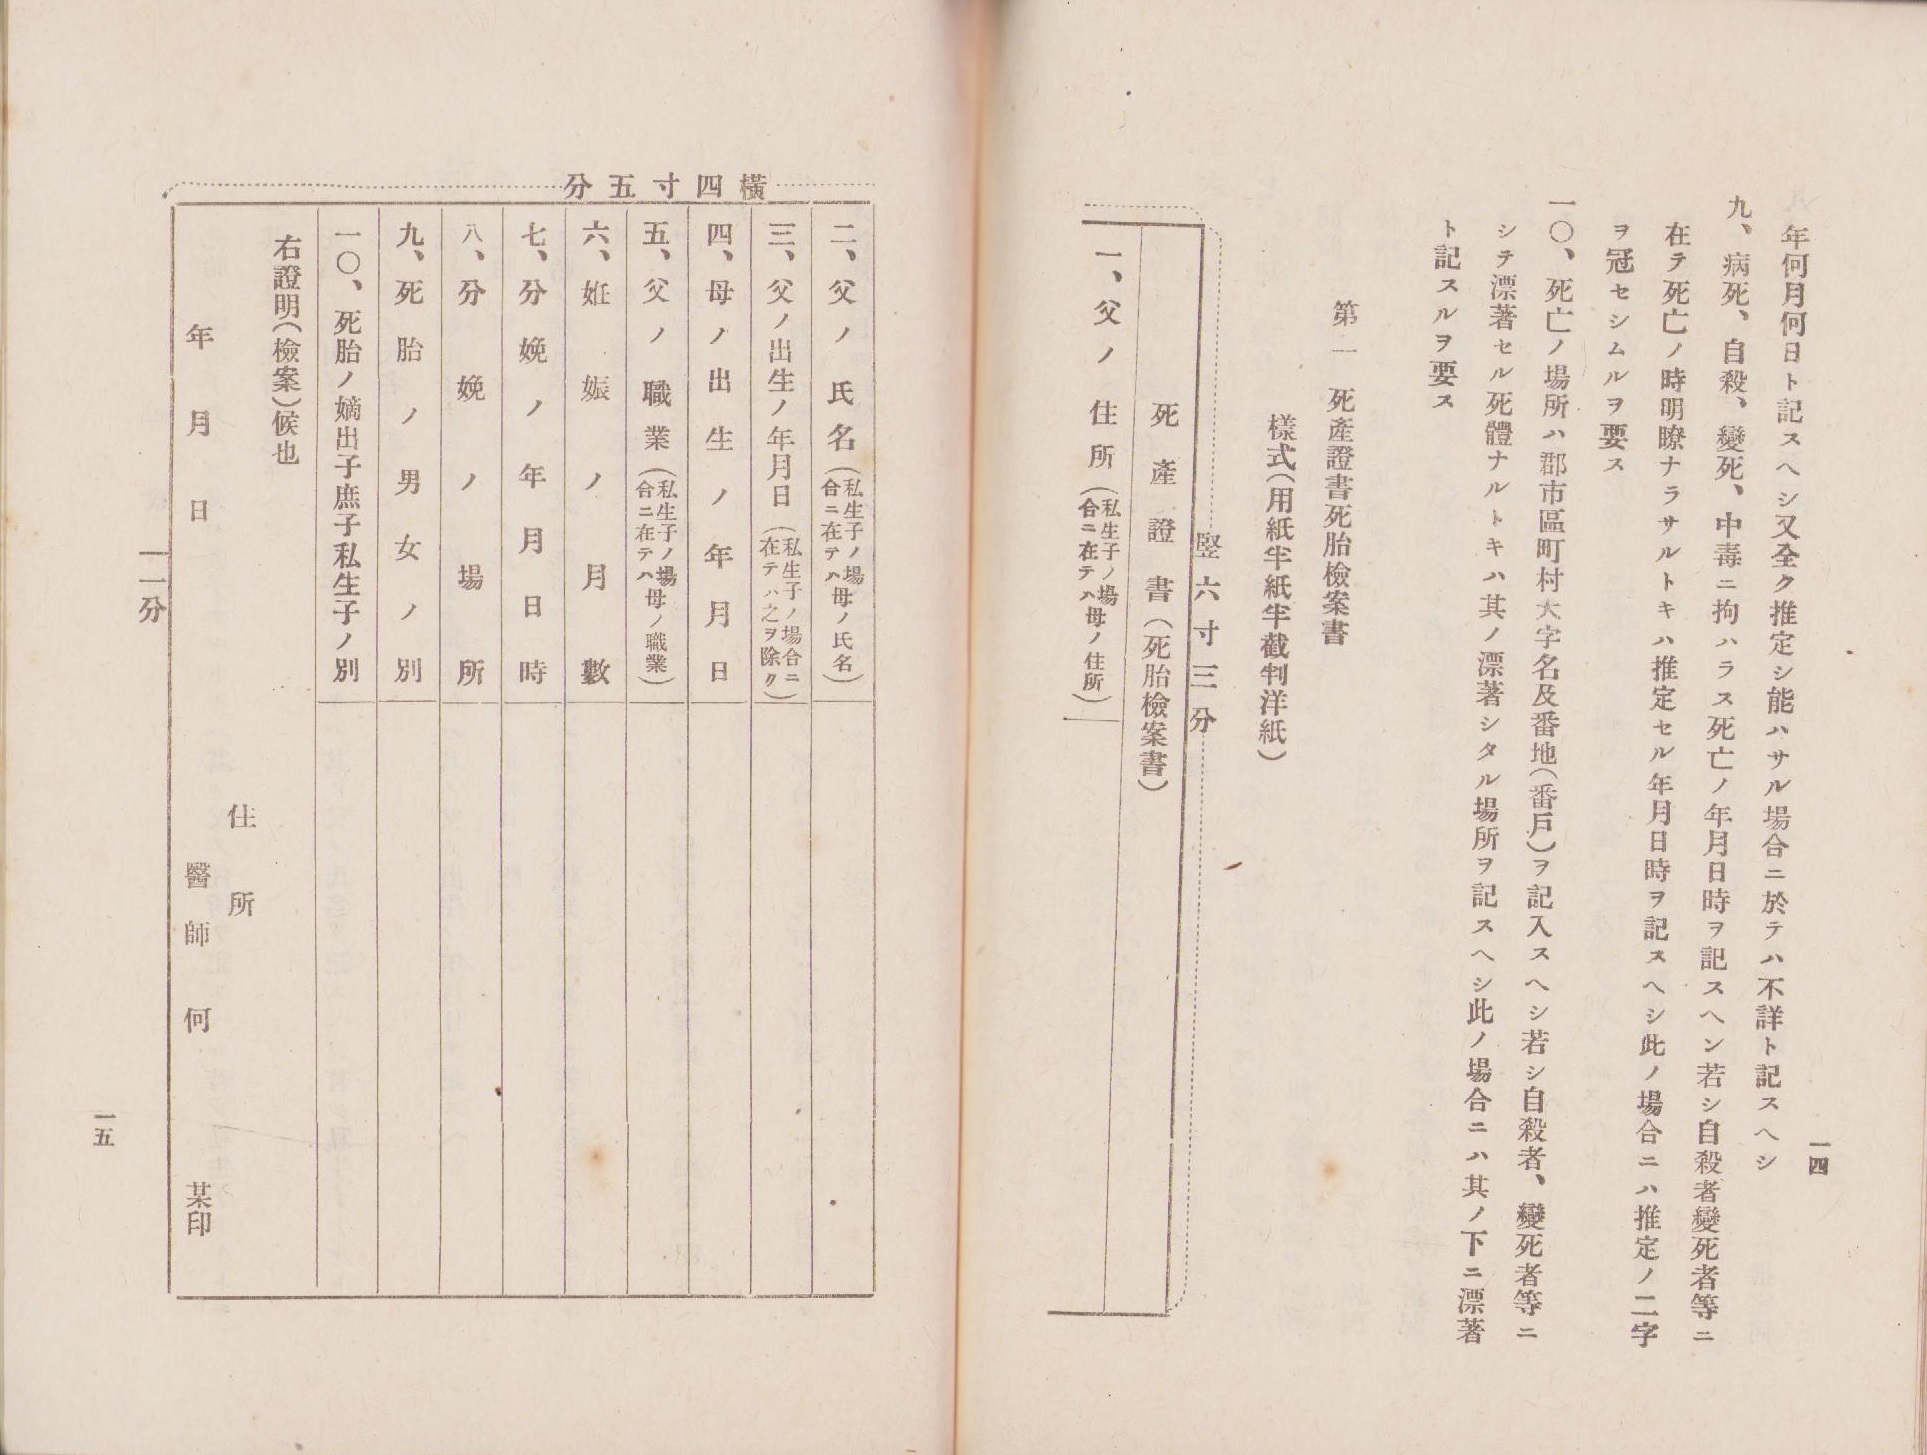 一四
年何月何日ト記スヘシ又全ク推定シ能ハサル場合ニ於テハ不詳ト記スヘシ
九、病死、自殺、變死、中毒ニ拘ハラス死亡ノ年月日時ヲ記スヘン若シ自殺者變死者等ニ
在テ死亡ノ時明瞭ナラサルトキハ推定セル年月日時ヲ記スヘシ此ノ場合ニハ推定ノ二字
ヲ冠セシムルヲ要ス
一〇、死亡ノ場所ハ郡市區町村大字名及番地(番戶)ヲ記入スヘシ若シ自殺者、變死者等ニ
シテ漂著セル死體ナルトキハ其ノ漂著シタル場所ヲ記スヘシ此ノ場合ニハ其ノ下ニ漂著
ト記スルヲ要ス
第一 死產證書死胎檢案書
樣式(用紙半紙半截判洋紙)
竪六寸三分
死產證書(死胎檢案書)
一、父ノ住所(私生子ノ場合ニ在テハ母ノ住所)
橫四寸五分
二、父ノ氏名(私生子ノ場合ニ在テハ母ノ氏名)
三、父ノ出生ノ年月日(私生子ノ場合ニ在テハ之ヲ除ク)
四、母ノ出生ノ年月日
五、父ノ職業(私生子ノ場合ニ在テハ母ノ職業)
六、姙娠ノ月數
七、分娩ノ年月日時
八、分娩ノ場所
九、死胎ノ男女ノ別
一〇、死胎ノ嫡出子庶子私生子ノ別
右證明(檢案)候也
住所
年月日 醫師何某印
一二分
一五